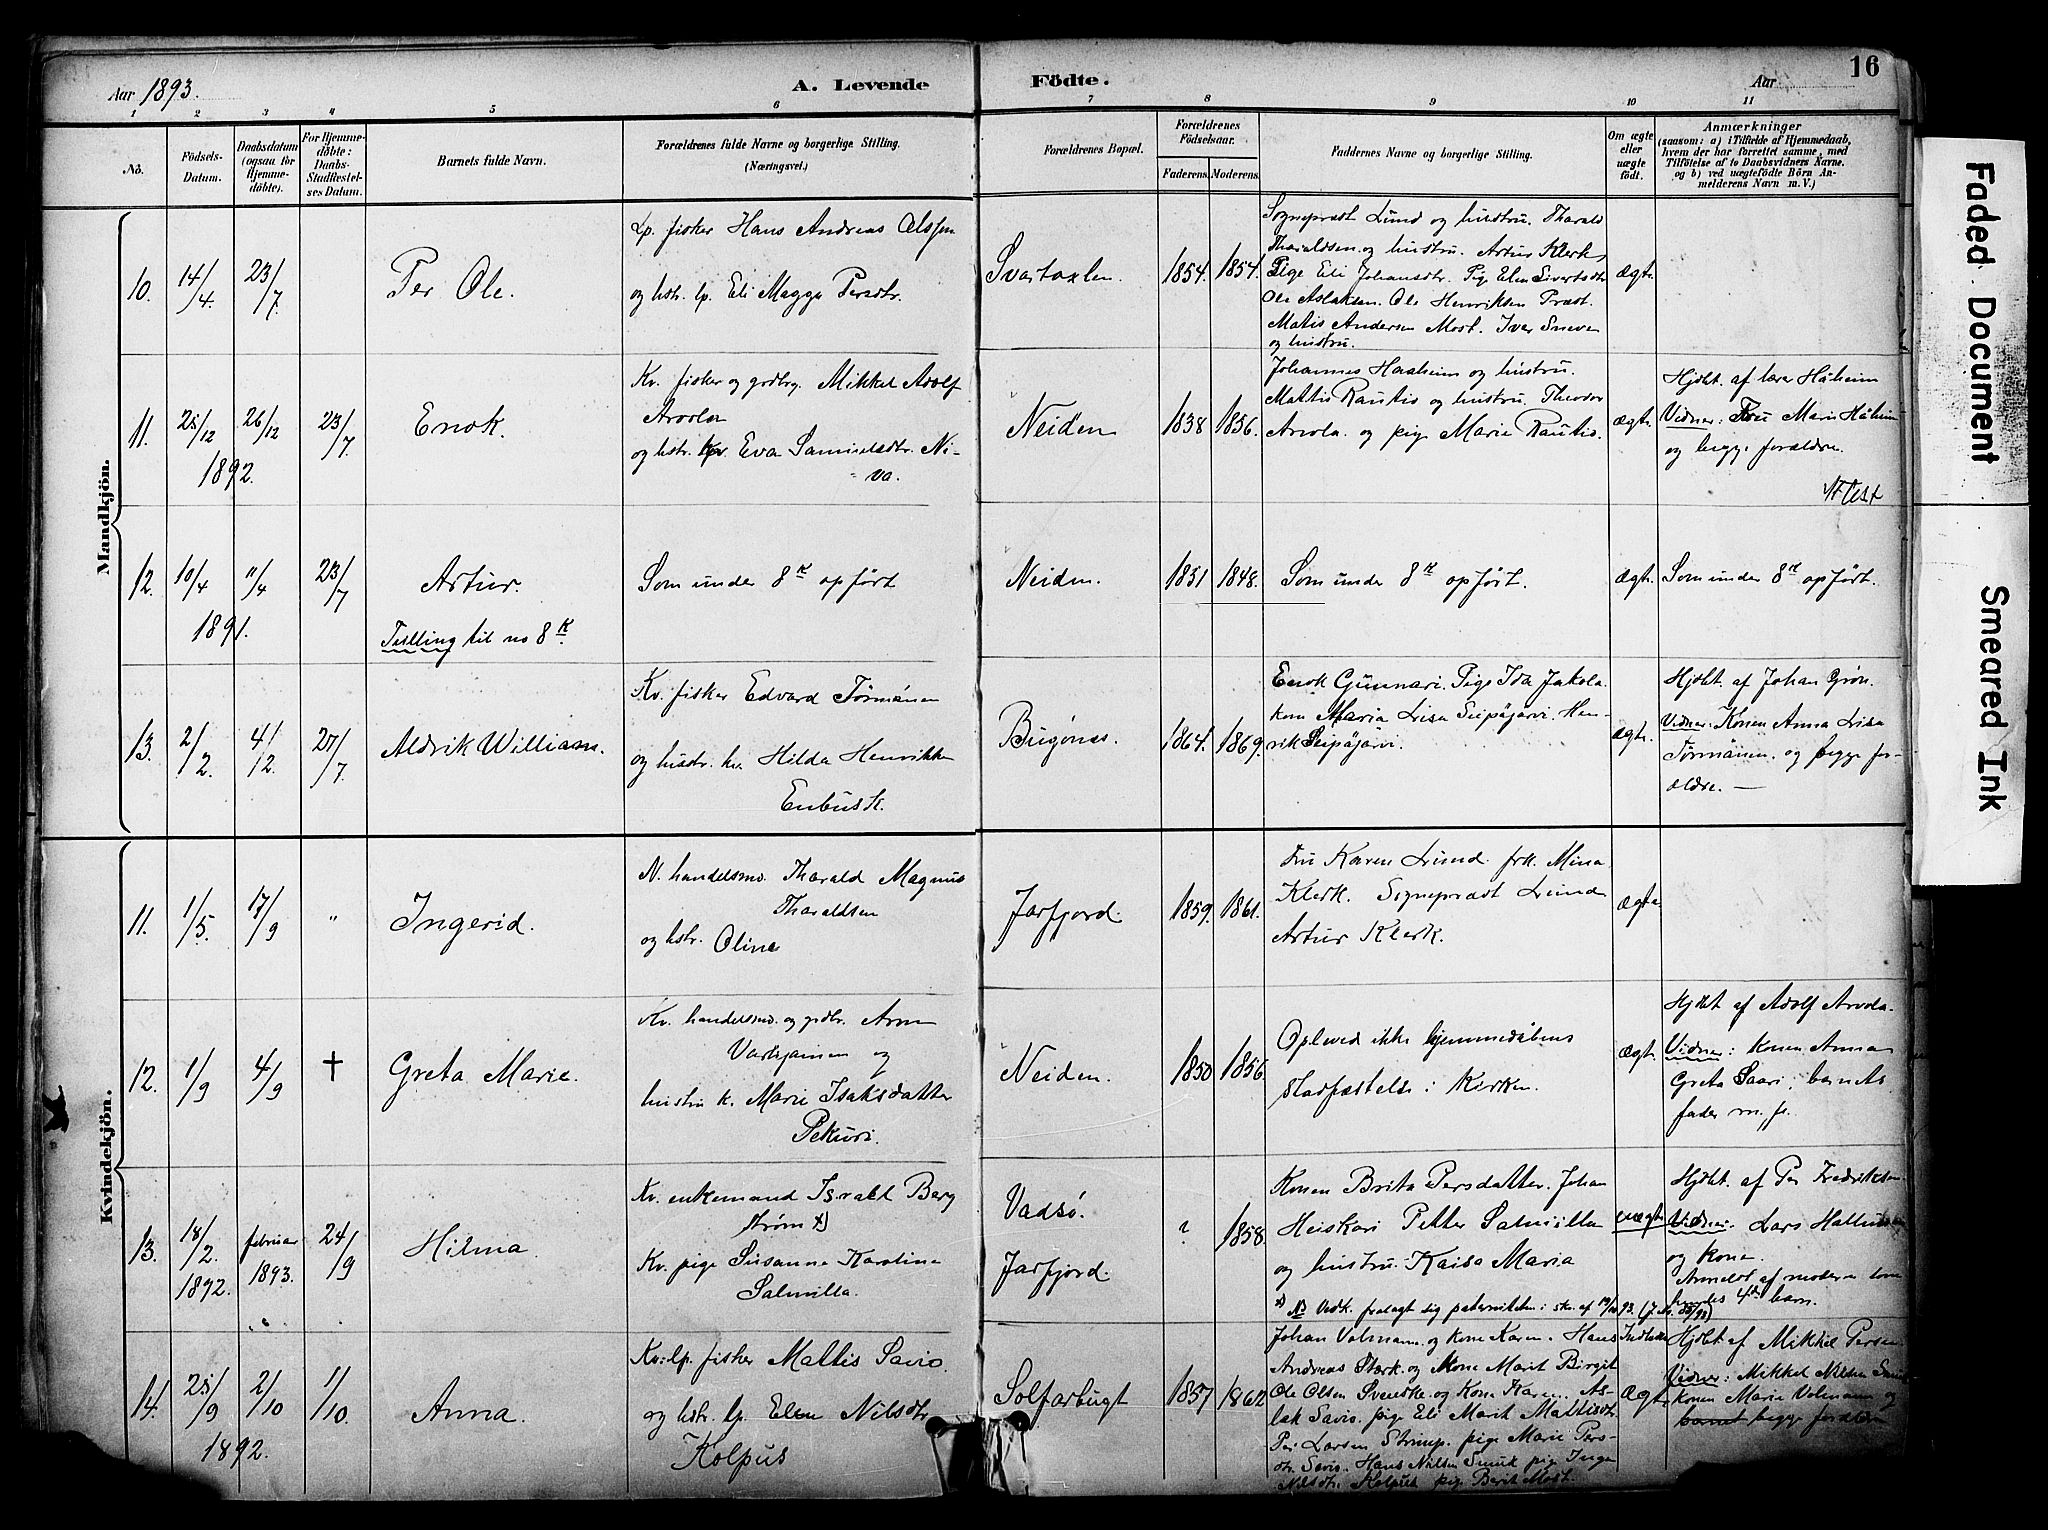 Aar 1893.
A. Levende
Födte.
Aar
16
1 2 3 4 5 6 7 8 9 10 11
No.
Födsels-
Datum.
Daabsdatum
(ogsaa for
Hjemme-
döbte).
For Hjemme-
döbte:
Daabs-
Stadfæstel-
ses Datum.
Barnets fulde Navn.
Forældrenes fulde Navne og borgerlige Stilling.
(Næringsvei.)
Forældrenes Bopæl.
Forældrenes
Födselsaar.
Faderens. Moderens.
Faddernes Navne og borgerlige Stilling.
Om ægte
eller
uægte
födt.
Anmærkninger
(saasom: a) i Tilfælde af Hjemmedaab,
hvem der har forrettet samme, med
Tilföielse af to Daabsvidners Navne.
og b) ved uægtefödte Börn An-
melderens Navn m. V.)
Mandkjön.
10.
14/4.
23/7.
Per Ole.
Lp. fisker Hans Andreas Olsen
og hstr. lp. Eli Magga Persdtr.
Svartaxlen.
1854. 1854.
Sogneprest Lund og hustru. Tharald
Tharaldsen og hustru. Artur Klerk,
Pige Eli Johansdtr. Pig Elen Sivertsdtr
Ole Aslaksen. Ole Henriksen Præst.
Matis Andersen Most. Iver Sneve
og hustru.
ægte
11.
25/12
26/12
23/7
1892.
Enok.
Kv. fisker og grdbrg. Mikkel Adolf
Arvola
og hstr. kv. Eva Samuelsdtr. Ni-
va.
Neiden
1838 1856.
Johannes Haaheim og hustru.
Mattis Rautio og hustru. Theodor
Arvola. og pige Marie Rautio.
ægte
Hjdbt. af lærer Håheim
Vidner: Fru Marie Håheim
og begge forældre.
12.
10/4
11/4
23/7
1891.
Artur.
Tvilling til no 8k.
Som under 8k opført
Neiden.
1851 1848.
Som under 8k opført.
ægte
Som under 8k opført.
13.
2/2.
4/2.
27/7.
Aldrik William.
Kv. fisker Edvard Törmänen
og hustr. kv. Hilda Henrikke
Enbusk.
Bugönes.
1864. 1869.
Enok Gunnari. Pige Ida Jakola.
kone Maria Lisa Seipäjärvi. Hen-
rik Seipäjärvi.
ægte
Hjdbt. af Johan Grön.
Vidner: Konen Anna Lisa
Törmänen. og begge for-
ældre. —
Kvindekjön.
11.
1/5.
17/9
"
Ingerid.
N. handelsmd. Tharald Magnus
Tharaldsen
og hstr. Oline
Jarfjord.
1859. 1861.
Fru Karen Lund. frk. Mina
Klerk. Sogneprest Lund
Artur Klerk.
ægte.
12.
1/9
4/9
†
Greta Marie.
Kv. handelsmd. og grdbr. Aron
og
hustru k. Marie Isaksdatter
Pekuri.
Neiden.
1850 1856.
Oplevede ikke hjemmedåbens
stadfæstelse i Kirken.
ægte
Hjdbt af Adolf Arvola.
Vidner: konen Anna
Greta Saari, barnets
fader m. fl.
13.
18/2.
1892.
februar
1893.
24/9
Hilma.
Kv. enkemand Israel Berg
strøm x)
Kv. pige Susanna Karolina
Salmilla.
Vadsø.
Jarfjord.
? 1858.
Konen Brita Persdatter. Johan
Heiskari Petter Salmilla
og hustru Kaisa Maria
uægte
Hjdbt. af Per Fredriksen
Vidner: Lars
og kone.
Anmeldt af moderen som
hendes 4de barn.
14.
25/9
2/10
1/10
1892.
Anna.
Kv. lp. fisker Mattis Savio
og hstr. lp. Elen Nilsdtr
Kolpus
Solfarbugt
1857 1862
Johan Volmann. og kone Karen. Hans
Andreas Stærk og Kone Marit Birgit
Ole Olsen Svenske. og Kone Karen. As-
lak Savio. pige Eli Marit Mattisdtr.
Per Larsen Strimp. pige Marie Pers-
dtr. Savio. Hans Nilsen Smuk pige Inga
Nilsdtr. Kolpus pig. Berit Most.
ægte
Hjdbt af Mikkel Persen
Vidner: Mikkel Nilsen
konen Marie Volmann og
begge forældre
Faded Document
Smeared Ink